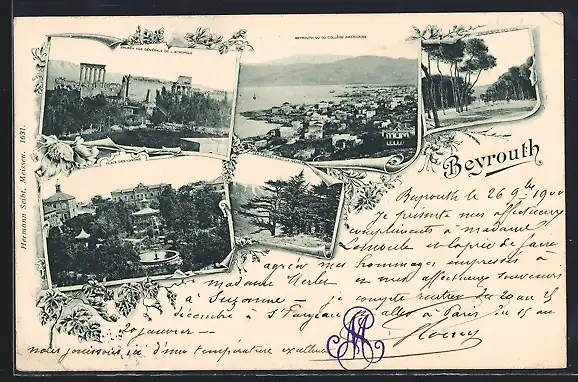 VUE GÉNÉRALE DE L'ACROPOLE
BEYROUTH VU DU COLLÈGE AMÉRICAIN
PLACE DES CANONS
Hermann Seibt, Meissen. 1631.
Beyrouth
Beyrouth le 26 9bre 1900
Je présente mes affectueux
compliments à madame
et la prie de faire
agréer mes hommages empressés à
madame et mes affectueux souvenirs
à Suzanne — je compte rentrer du 20 au 25
décembre à St Fargeau et aller à Paris du 15 au
20 janvier —
nous jouissons ici d'une température excellente